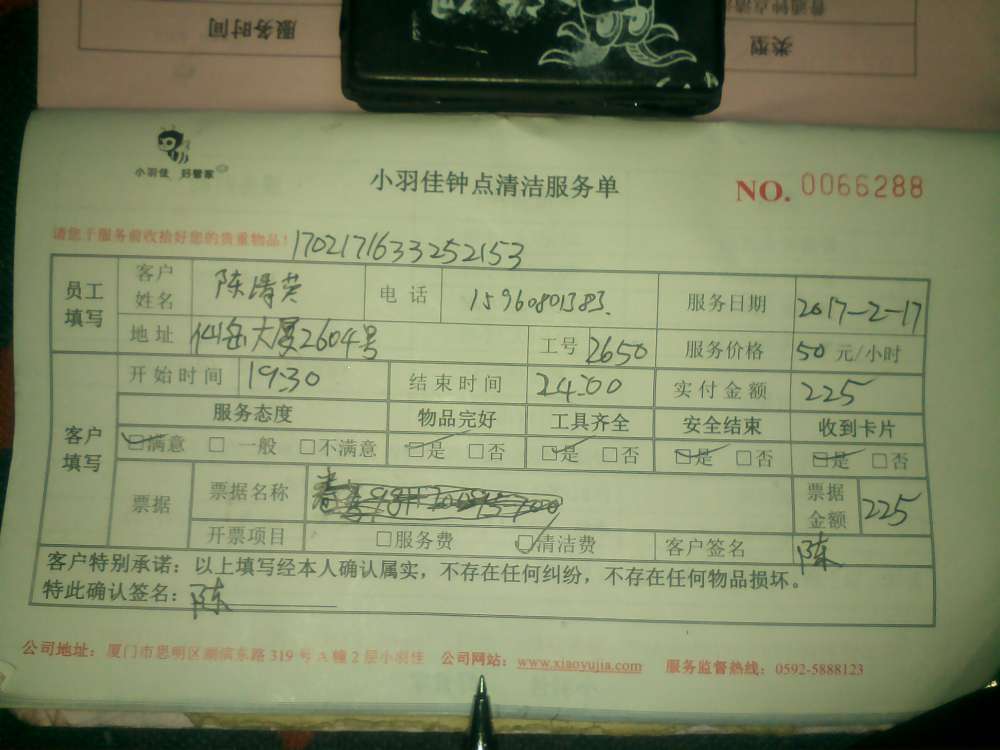 服务时间
类型
小羽佳 好管家
小羽佳钟点清洁服务单
NO. 0066288
请您于服务前收拾好您的贵重物品！
1702171633252153
员工填写 客户姓名 陈清英 电话 15960801383. 服务日期 2017-2-17
地址 仙岳大厦2604号 工号 2650 服务价格 50 元/小时
客户填写 开始时间 19:30 结束时间 24:00 实付金额 225
服务态度 物品完好 工具齐全 安全结束 收到卡片
☑满意 □ 一般 □不满意 ☑是 □否 ☑是 □否 ☑是 □否 ☑是 □否
票据 票据名称 票据金额 225
开票项目 □服务费 ☑清洁费 客户签名 陈
客户特别承诺：以上填写经本人确认属实，不存在任何纠纷，不存在任何物品损坏。
特此确认签名：陈
公司地址：厦门市思明区湖滨东路 319 号 A 幢 2 层小羽佳 公司网站：www.xiaoyujia.com 服务监督热线：0592-5888123